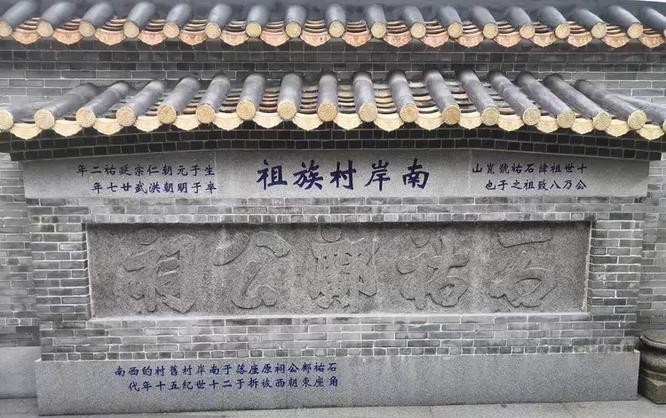 十世祖諱石祐號崑山
公乃八致祖之子也
南岸村族祖
生于元朝仁宗延祐二年
卒于明朝洪武廿七年
石祐鄭公祠
石祐鄭公祠原座落于南岸村舊村的西南
角座東朝西被拆于二十世紀五十年代